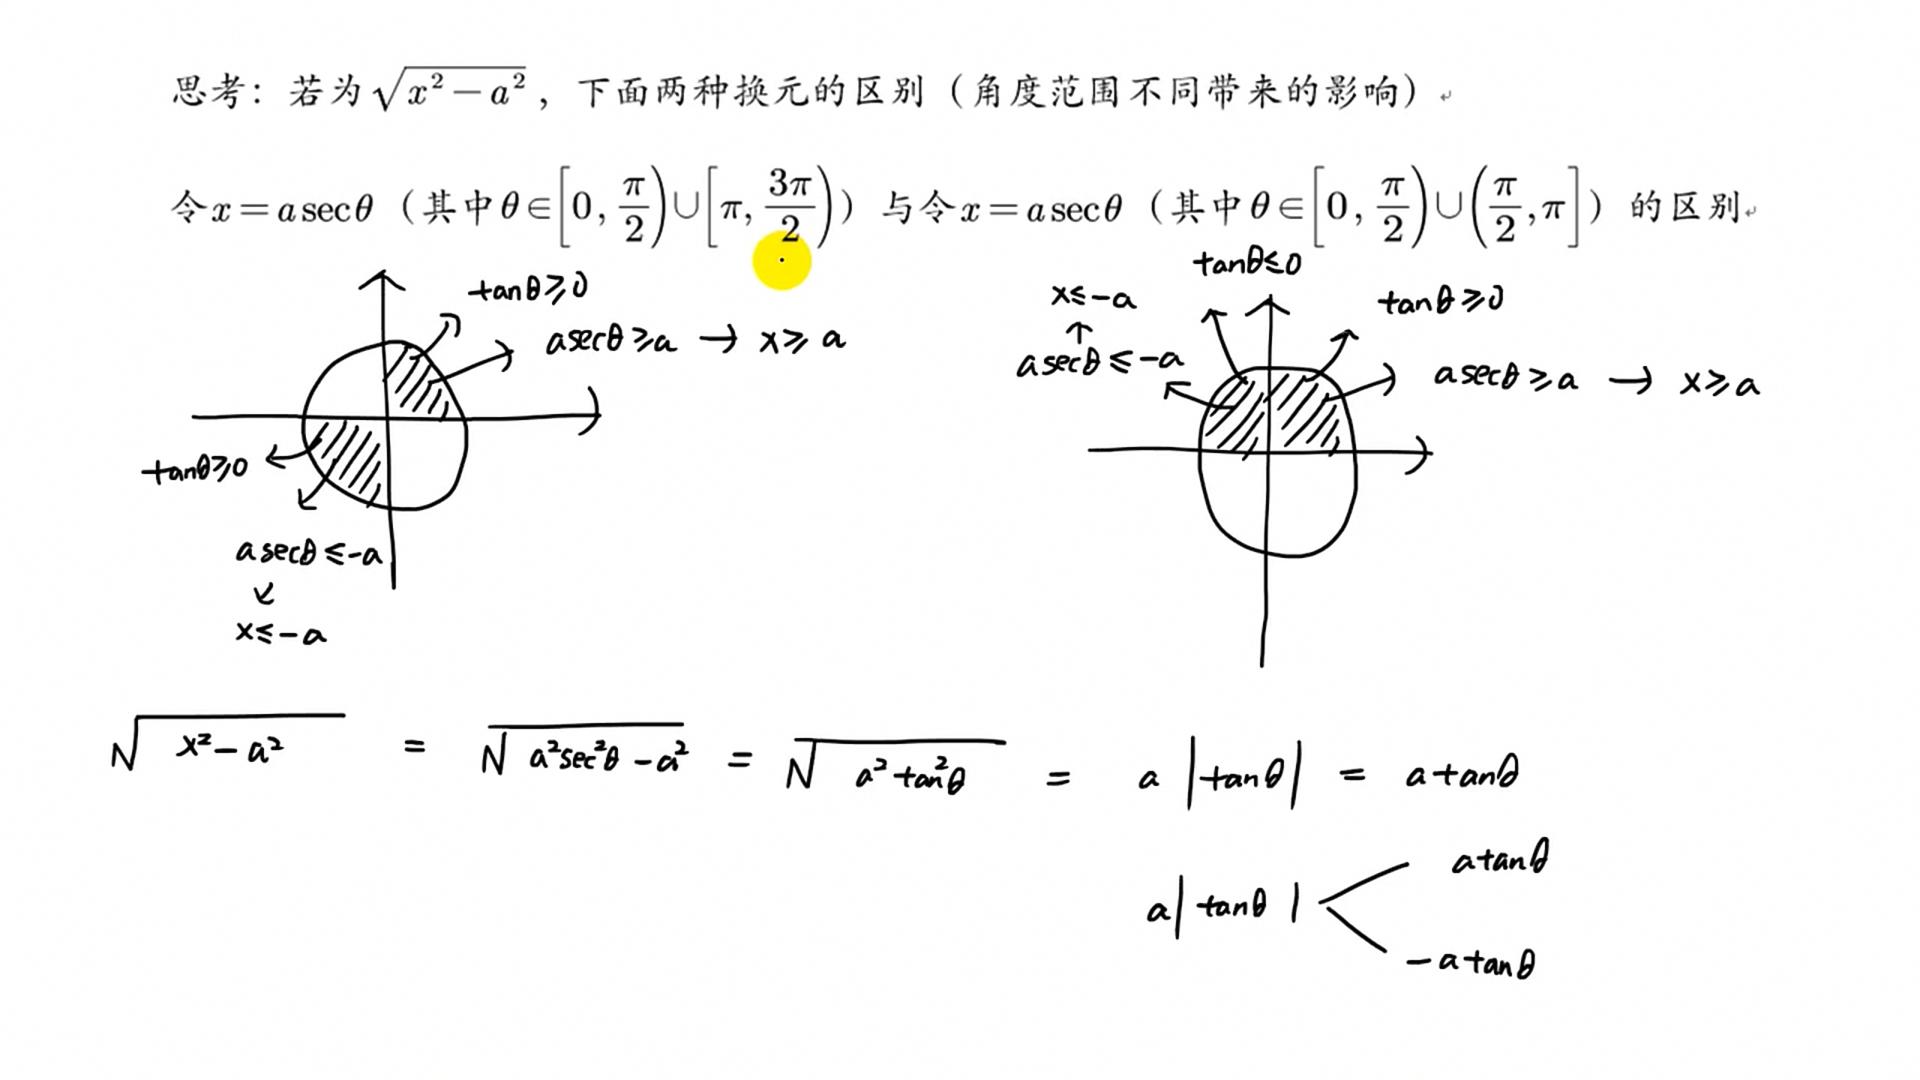 思考：若为√(x²－a²)，下面两种换元的区别（角度范围不同带来的影响）
令x＝a secθ（其中θ∈[0, π/2)∪[π, 3π/2)）与令x＝a secθ（其中θ∈[0, π/2)∪(π/2, π]）的区别
tanθ≥0
asecθ≥a → x≥a
tanθ≥0
asecθ≤-a
↓
x≤-a
tanθ≤0
x≤-a
↑
asecθ≤-a
tanθ≥0
asecθ≥a → x≥a
√(x²-a²) = √(a²sec²θ-a²) = √(a²tan²θ) = a|tanθ| = atanθ
atanθ
a|tanθ|
-atanθ